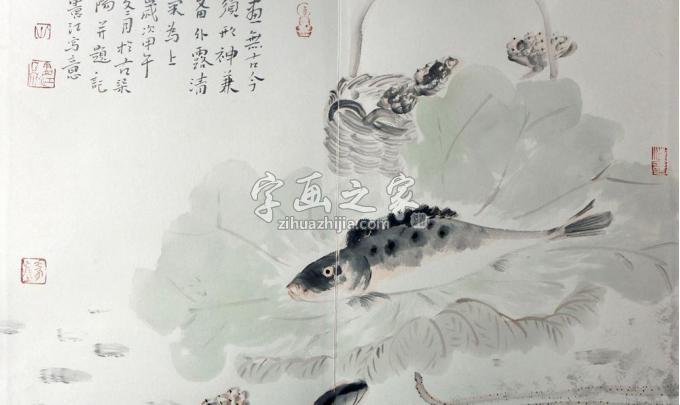 画無古今
須形神兼
備外露清
氣為上
歲次甲午
冬月於古柒
陽并題記
雲江寫意
字画之家
zihuazhijia.com